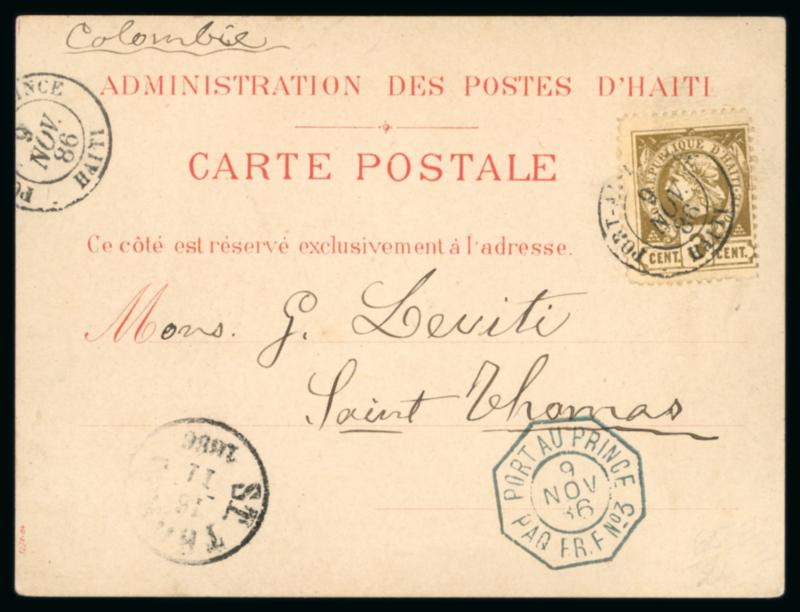 Colombie
ADMINISTRATION DES POSTES D'HAITI
INCE
9
NOV.
86
HAITI
CARTE POSTALE
REPUBLIQUE D'HAITI
PORT-A
9
NOV.
86
HAITI
CENT. CENT.
Ce côté est réservé exclusivement à l'adresse.
Mons. G. Leviti
Saint Thomas
PORT AU PRINCE
9
NOV
86
PAQ. FR. F No 3
1886
11
ST TH